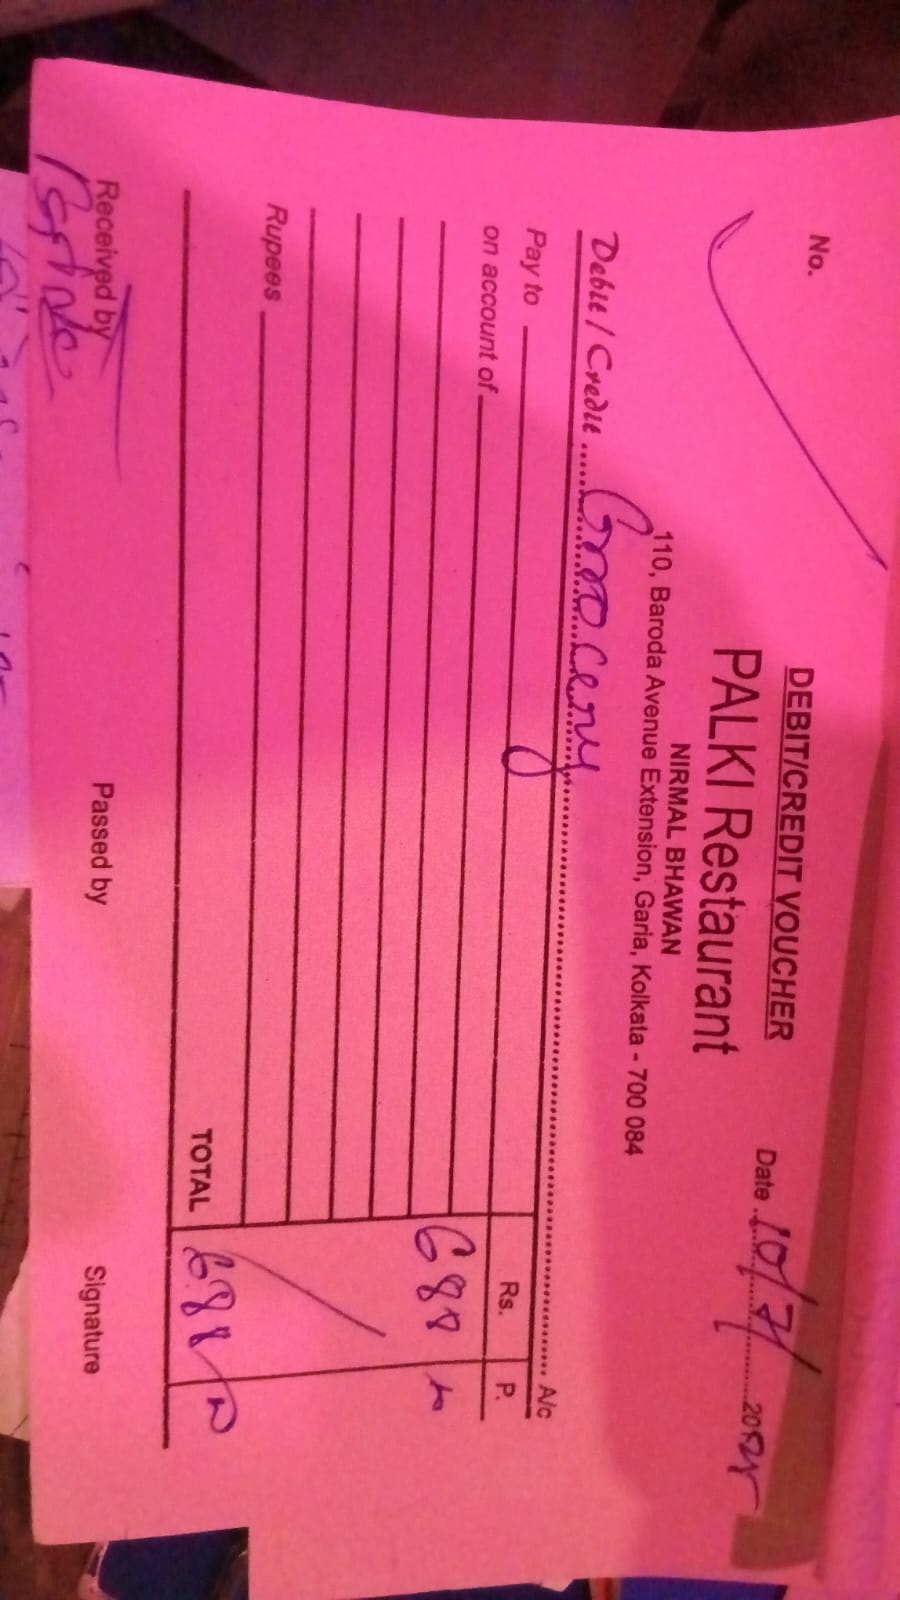 No.
DEBIT/CREDIT VOUCHER
Date 10/7/
PALKI Restaurant
NIRMAL BHAWAN
110, Baroda Avenue Extension, Garia, Kolkata - 700 084
Debit / Credit Grocery A/c
Pay to
Rs. P.
on account of
688
Rupees
TOTAL 688
Received by Passed by Signature